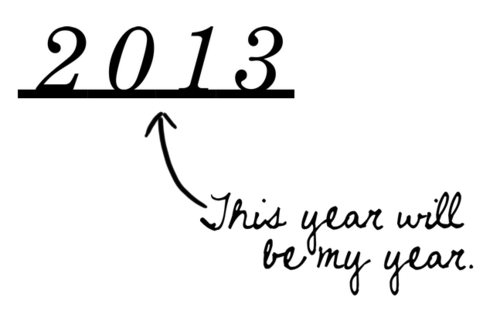 2013
This year will
be my year.